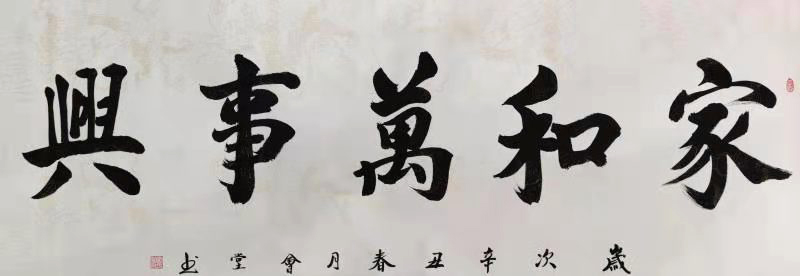 家和萬事興
歲次辛丑春月會堂书